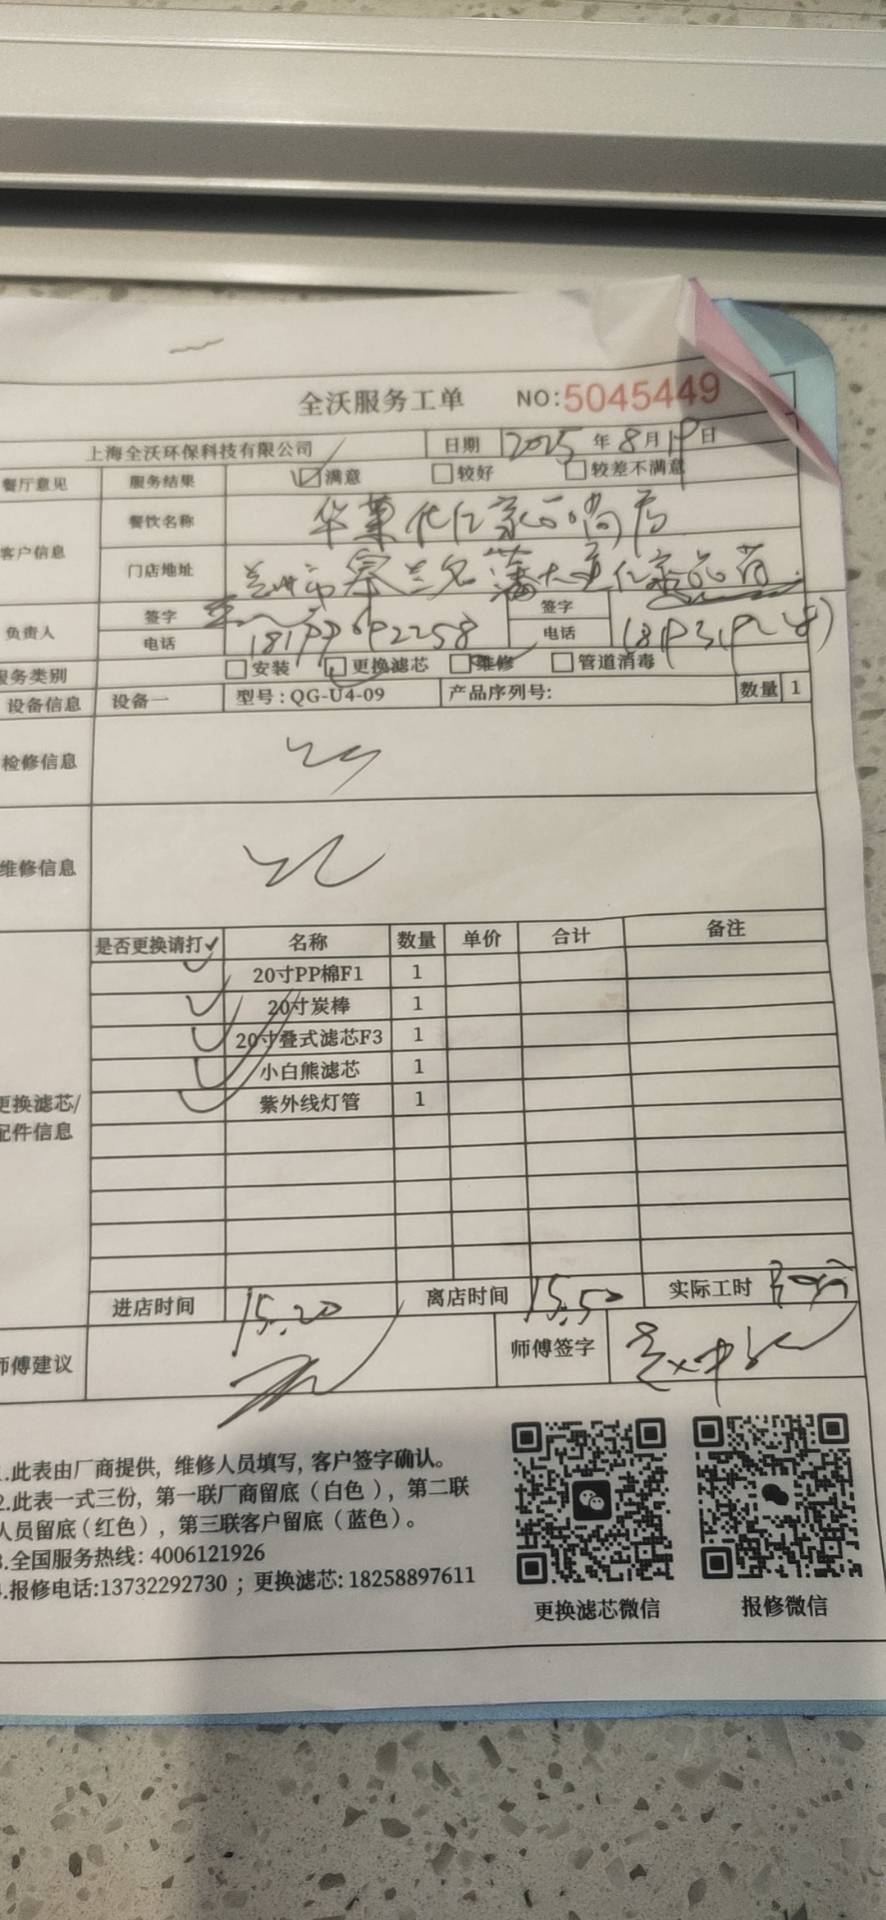 全沃服务工单 NO:5045449
上海全沃环保科技有限公司 日期 2025 年 8 月 19 日
餐厅意见 服务结果 满意 较好 较差不满意
客户信息 餐饮名称 华莱
门店地址
负责人 签字 签字
电话 电话
服务类别 安装 更换滤芯 维修 管道消毒
设备信息 设备一 型号:QG-U4-09 产品序列号: 数量 1
检修信息
维修信息
是否更换请打✓ 名称 数量 单价 合计 备注
✓ 20寸PP棉F1 1
✓ 20寸炭棒 1
✓ 20寸叠式滤芯F3 1
✓ 小白熊滤芯 1
✓ 紫外线灯管 1
更换滤芯/
配件信息
进店时间 15.20 离店时间 15.50 实际工时
师傅建议 师傅签字
1.此表由厂商提供, 维修人员填写, 客户签字确认。
2.此表一式三份, 第一联厂商留底(白色), 第二联
人员留底(红色), 第三联客户留底(蓝色)。
3.全国服务热线: 4006121926
4.报修电话:13732292730 ; 更换滤芯: 18258897611
更换滤芯微信 报修微信